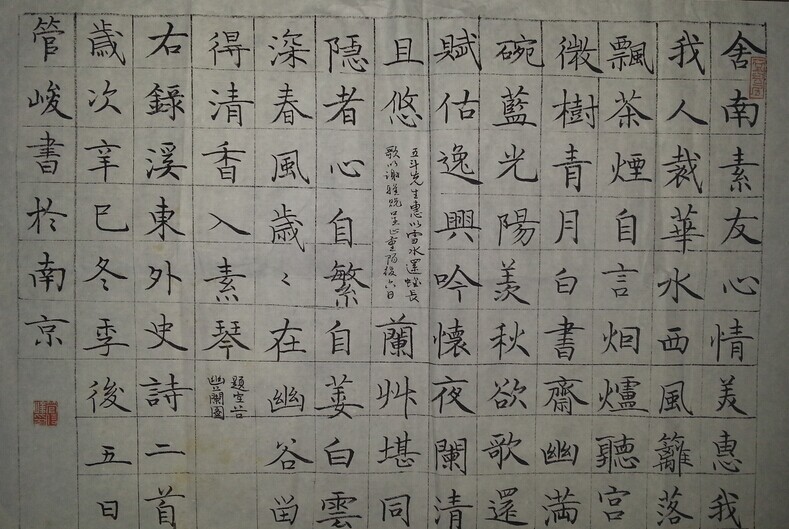 舍南素友心情美惠我
我人裁華水西風籬落
飄茶煙自言烱爐聽宮
微樹青月白書齋幽满
碗藍光陽羡秋欲歌還
賦估逸興吟懷夜闌清
且悠
五斗先生惠以雪水還長
歌以謝雅貺呈正重陽後六日
蘭艸堪同
隱者心自繁自萎白雲
深春風歲々在幽谷留
得清香入素琴
題空谷
幽蘭圖
右錄溪東外史詩二首
歲次辛巳冬季後五日
管峻書於南京